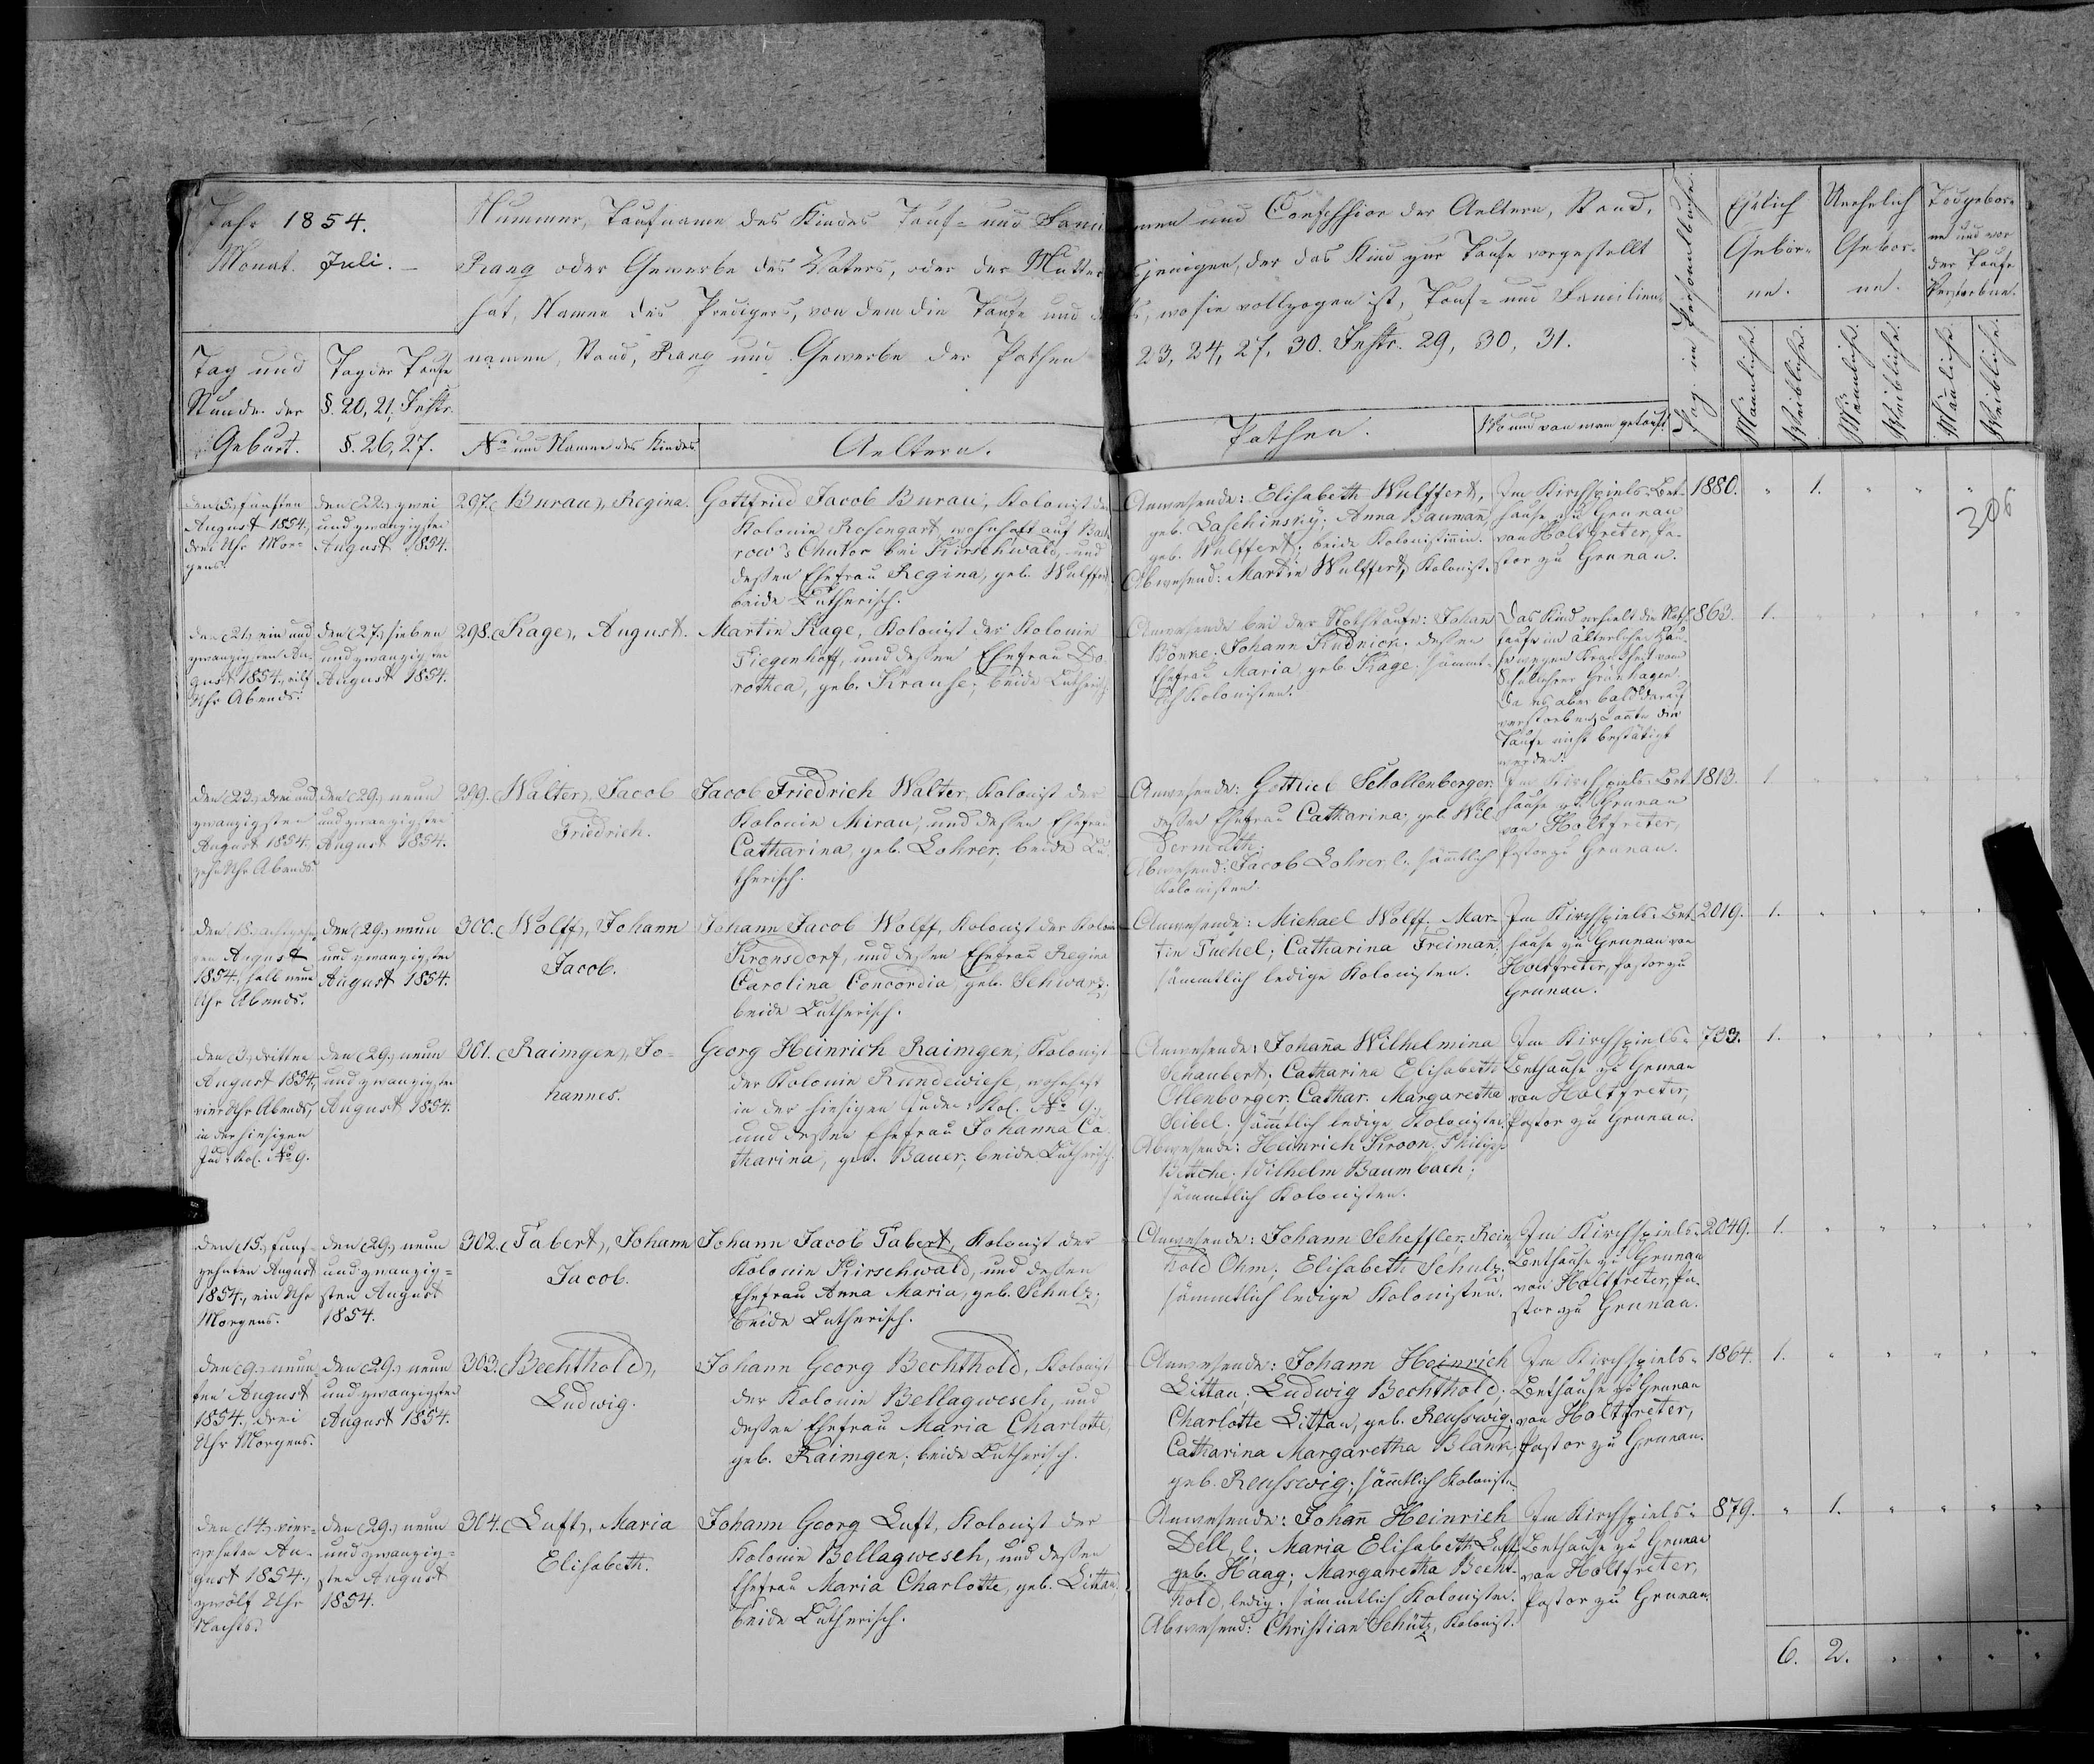 Jahr 1854.
Monat. Juli. –
Tag und
Stunde der
Geburt.
Tag der Taufe
§. 20, 21, Instr.
§. 26, 27.
Nummer, Taufname des Kindes Tauf- und Fami
Rang oder Gewerbe des Vaters, oder der Mutter
hat, Namen des Predigers, von dem die Taufe und
namen, Stand, Rang und Gewerbe der Pathen
No und Namen des Kindes
Aeltern.
men und Confession der Aeltern, Stand,
jenigen, der das Kind zur Taufe vorgestellt
wo sie vollzogen ist, Tauf- und Familien-
23, 24, 27, 30. Instr. 29, 30, 31.
Pathen.
Wo und von wem getauft.
Pag. im Personalbuche.
Ehelich
Gebor-
ne.
Unehelich
Gebor-
ne.
Todtgebor-
ne und vor
der Taufe
Verstorbne.
Männliche.
Weibliche.
Männliche.
Weibliche.
Männliche.
Weibliche.
den (5.) fünften
August 1854.,
drei Uhr Mor-
gens.
den (22.) zwei
und zwanzigsten
August 1854.
297. (Burau), Regina.
Gottfried Jacob Burau, Kolonist der
Kolonie Rosengart, wohnhaft auf
Chutor bei Kirschwald, und
dessen Ehefrau Regina, geb. Wulffert,
beide Lutherisch.
Anwesende: Elisabeth Wulffert,
geb. Laschinsky; Anna Baumañ,
geb. Wulffert; beide Kolonistinnen.
Abwesend: Martin Wulffert, Kolonist.
Im Kirchspiels-Bet-
hause zu Grunau
von Holtfreter, Pa-
stor zu Grunau.
1880.
1.
306
den (21.) ein und
zwanzigsten Au-
gust 1854., eilf
Uhr Abends.
den (27.) sieben
und zwanzigsten
August 1854.
298. (Kage), August.
Martin Kage, Kolonist der Kolonie
Tiegenhoff, und dessen Ehefrau Do-
rothea, geb. Krause; beide Lutherisch.
Anwesende bei der Nothtaufe: Johañ
Bönke. Johann Rudnick. dessen
Ehefrau Maria geb. Kage. sämmt-
lich Kolonisten.
Das Kind erhielt die Noth-
taufe im älterlichen Hau-
se wegen Krankheit vom
Schullehrer Grünhagen.
Da es aber bald darauf
verstorben, konnte die
Taufe nicht bestätigt
werden.
863.
1.
den (23.) drei und
zwanzigsten
August 1854.,
zehn Uhr Abends.
den (29.) neun
und zwanzigsten
August 1854.
299. (Walter), Jacob
Friedrich.
Jacob Friedrich Walter, Kolonist der
Kolonie Mirau, und dessen Ehefrau
Catharina, geb. Lohrer, beide Lu-
therisch.
Anwesende: Gottlieb Schollenberger;
dessen Ehefrau Catharina, geb. Wil-
dermuth;
Abwesend: Jacob Lohrer l. sämtlich
Kolonisten.
Im Kirchspiels-Bet-
hause zu Grunau
von Holtfreter,
Pastor zu Grunau.
1813.
1
den (18.) achtzehn-
ten August
1854., halb neun
Uhr Abends.
den (29.) neun
und zwanzigsten
August 1854.
300. (Wolff), Johann
Jacob.
Johann Jacob Wolff, Kolonist der Kolonie
Kronsdorf, und dessen Ehefrau Regina
Carolina Concordia, geb. Schwarz;
beide Lutherisch.
Anwesende: Michael Wolff. Mar-
tin Tuchel; Catharina Freimañ;
sämmtlich ledige Kolonisten.
Im Kirchspiels-Bet-
hause zu Grunau von
Holtfreter, Pastor zu
Grunau.
2019.
1.
den (3.) dritten
August 1854.,
vier Uhr Abends,
in der hiesigen
Jud. Kol. No 9.
den (29.) neun
und zwanzigsten
August 1854.
301. (Raimgen), Jo-
hannes.
Georg Heinrich Raimgen, Kolonist
der Kolonie Rundewiese, wohnhaft
in der hiesigen Juden-Kol. No 9.;
und dessen Ehefrau Johanna Ca-
tharina, geb. Bauer; beide Lutherisch.
Anwesende: Johaña Wilhelmina
Schaubert; Catharina Elisabeth
Ollenborger. Cathar. Margaretha
Seibel. sämtlich ledige Kolonisten.
Abwesende: Heinrich Kroon. Philipp
Bettche. Wilhelm Baumbach;
sämmtlich Kolonisten.
Im Kirchspiels-
Bethause zu Grunau
von Holtfreter,
Pastor zu Grunau.
733.
1.
den (15.) fünf-
zehnten August
1854., ein Uhr
Morgens.
den (29.) neun
und zwanzig-
sten August
1854.
302. (Tabert), Johann
Jacob.
Johann Jacob Tabert, Kolonist der
Kolonie Kirschwald, und dessen
Ehefrau Anna Maria, geb. Schulz;
beide Lutherisch.
Anwesende: Johann Scheffler. Rein-
hold Ohm; Elisabeth Schulz.
sämmtlich ledige Kolonisten.
Im Kirchspiels-
Bethause zu Grunau
von Holtfreter, Pa-
stor zu Grunau.
2049.
1.
den (9.) neun-
ten August
1854., drei
Uhr Morgens.
den (29.) neun
und zwanzigsten
August 1854.
303. (Bechthold),
Ludwig.
Johann Georg Bechthold, Kolonist
der Kolonie Bellagwesch, und
dessen Ehefrau Maria Charlotte,
geb. Raimgen; beide Lutherisch.
Anwesende: Johann Heinrich
Littau; Ludwig Bechthold;
Charlotte Littau, geb. Reusswig;
Catharina Margaretha Blank,
geb. Reusswig; sämtlich Kolonisten.
Im Kirchspiels-
Bethause zu Grunau
von Holtfreter,
Pastor zu Grunau.
1864.
1.
den (14.) vier-
zehnten Au-
gust 1854.,
zwölf Uhr
Nachts.
den (29.) neun
und zwanzig-
sten August
1854.
304. (Luft), Maria
Elisabeth.
Johann Georg Luft, Kolonist der
Kolonie Bellagwesch, und dessen
Ehefrau Maria Charlotte, geb. Littau;
beide Lutherisch.
Anwesende: Johañ Heinrich
Dell, l. Maria Elisabeth Luft,
geb. Haag; Margaretha Becht-
hold, ledig. sämmtlich Kolonisten.
Abwesend: Christian Schütz, Kolonist.
Im Kirchspiels-
Bethause zu Grunau
von Holtfreter,
Pastor zu Grunau.
879.
1.
6. 2.